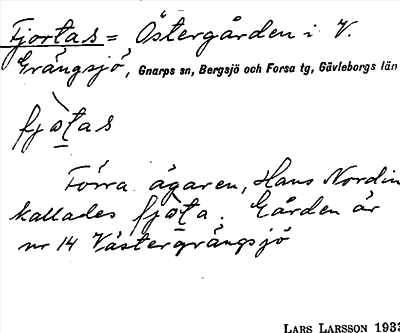 Fjortas = Östergården i V.
Grängsjö, Gnarps sn, Bergsjö och Forsa tg, Gävleborgs län
fjo̱tas
Förra ägaren, Hans Nordin
kallades fjo̱ta. Gården är
nr 14 Västergrängsjö
LARS LARSSON 1933